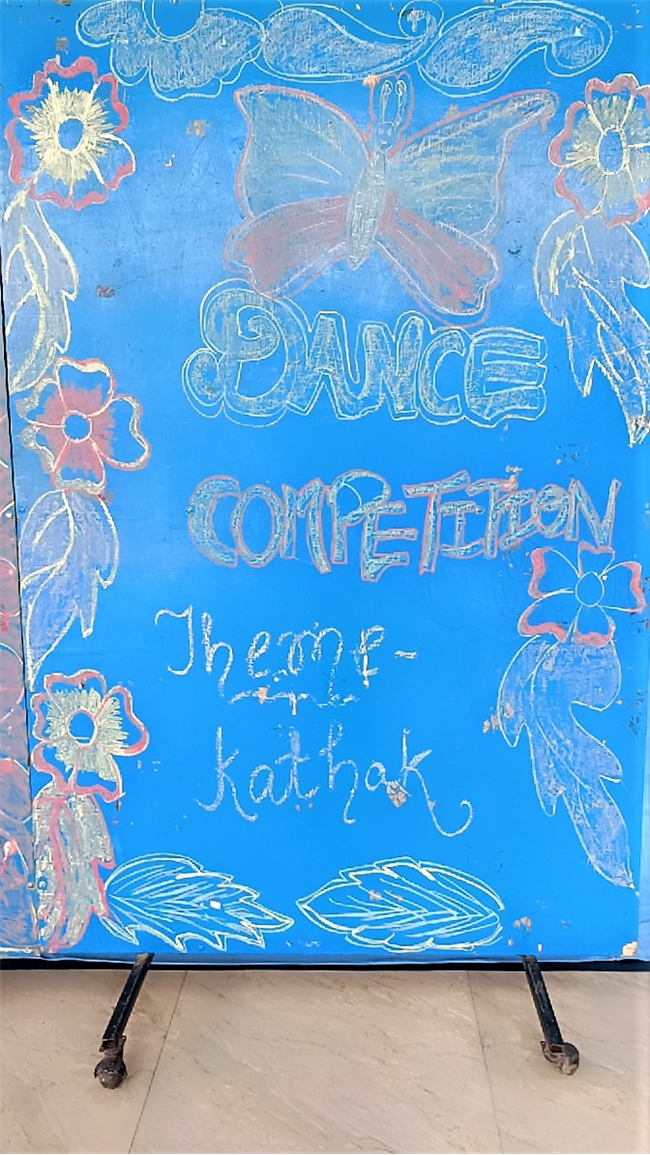 DANCE
COMPETITION
Theme-
Kathak